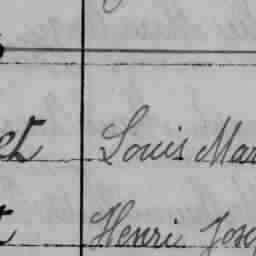 et Louis Mar
t Henri Jose